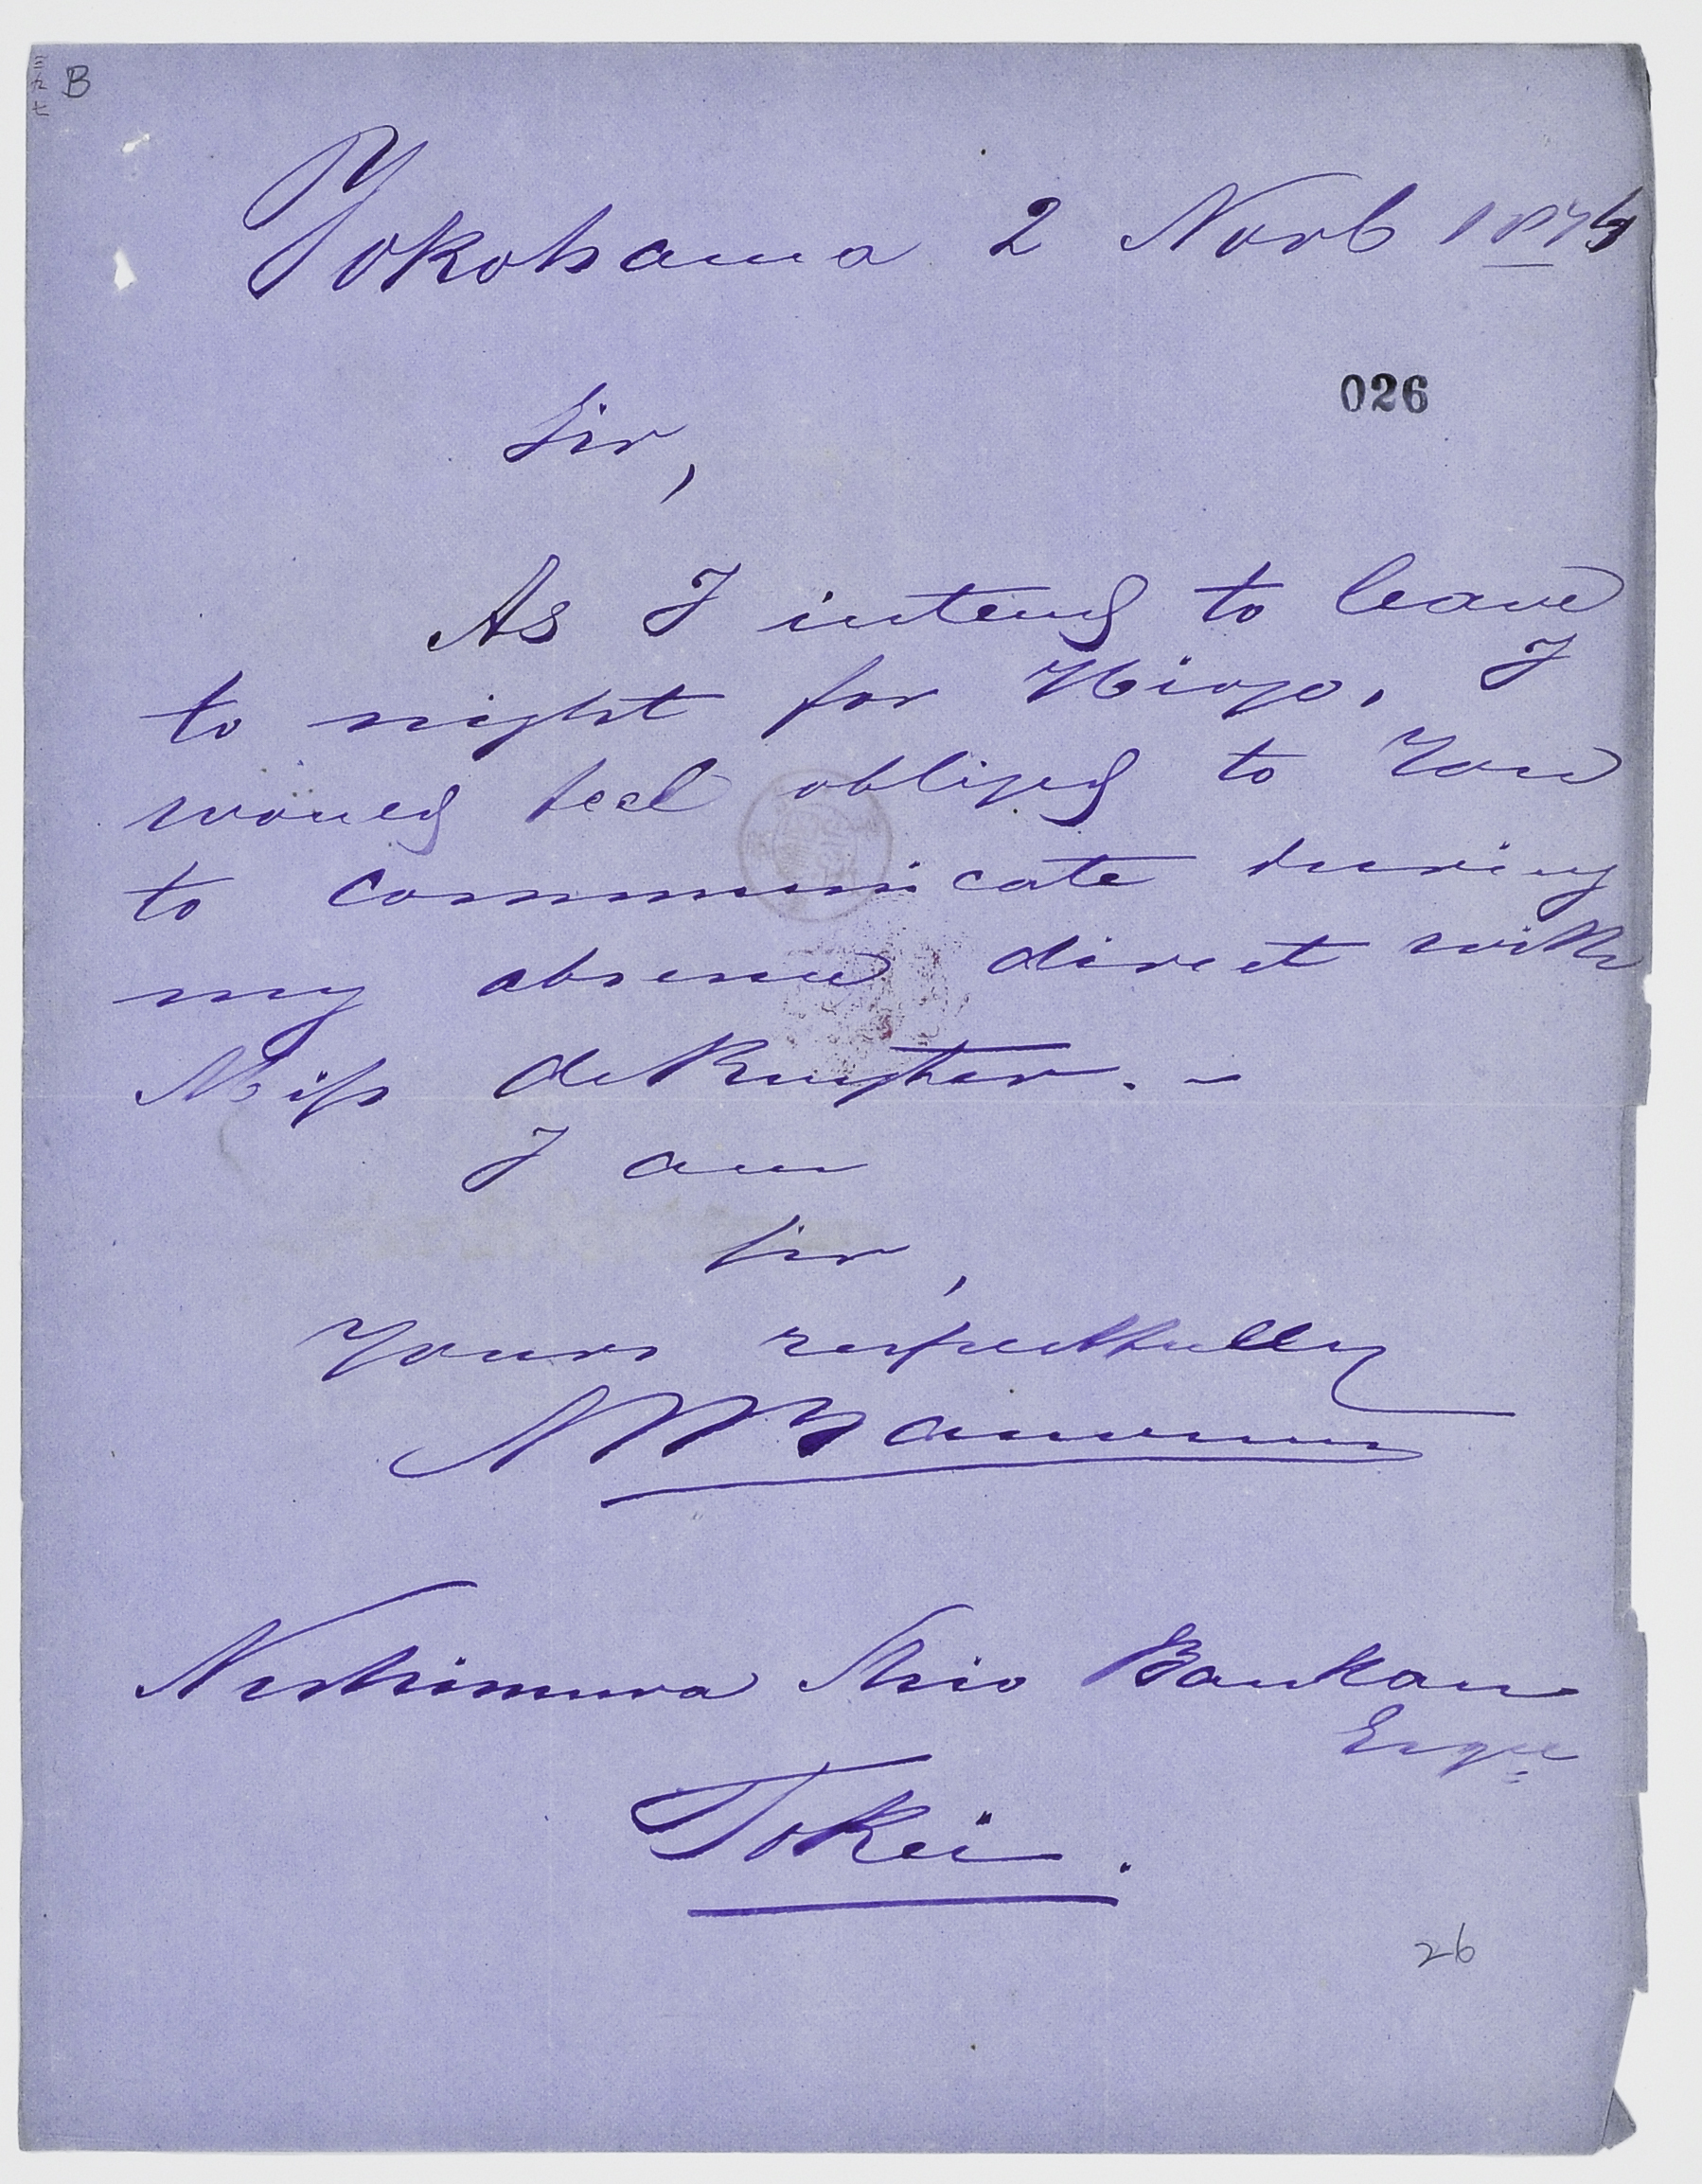 B
Yokohama 2 Novb 1874
026
Sir,
As I intend to leave
to night for Hiogo, I
would feel obliged to You
to communicate during
my absence direct with
Miss de Ruyter. -
I am
Sir,
Yours respectfully
Nishimura Shio Bankan
Esqre
Tokei.
26